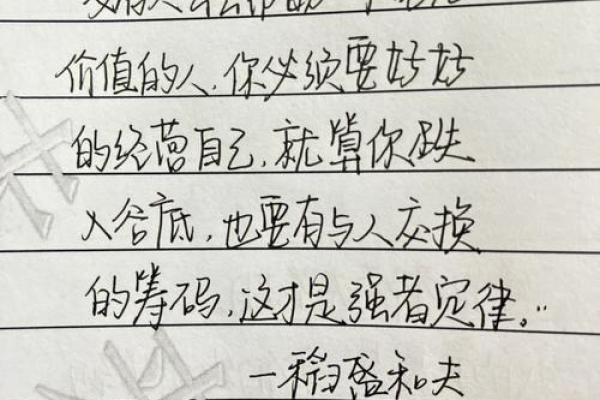 价值的人，你必须要好好
的经营自己，就算你跌
入谷底，也要有与人交换
的筹码，这才是强者定律。..
一稻盛和夫